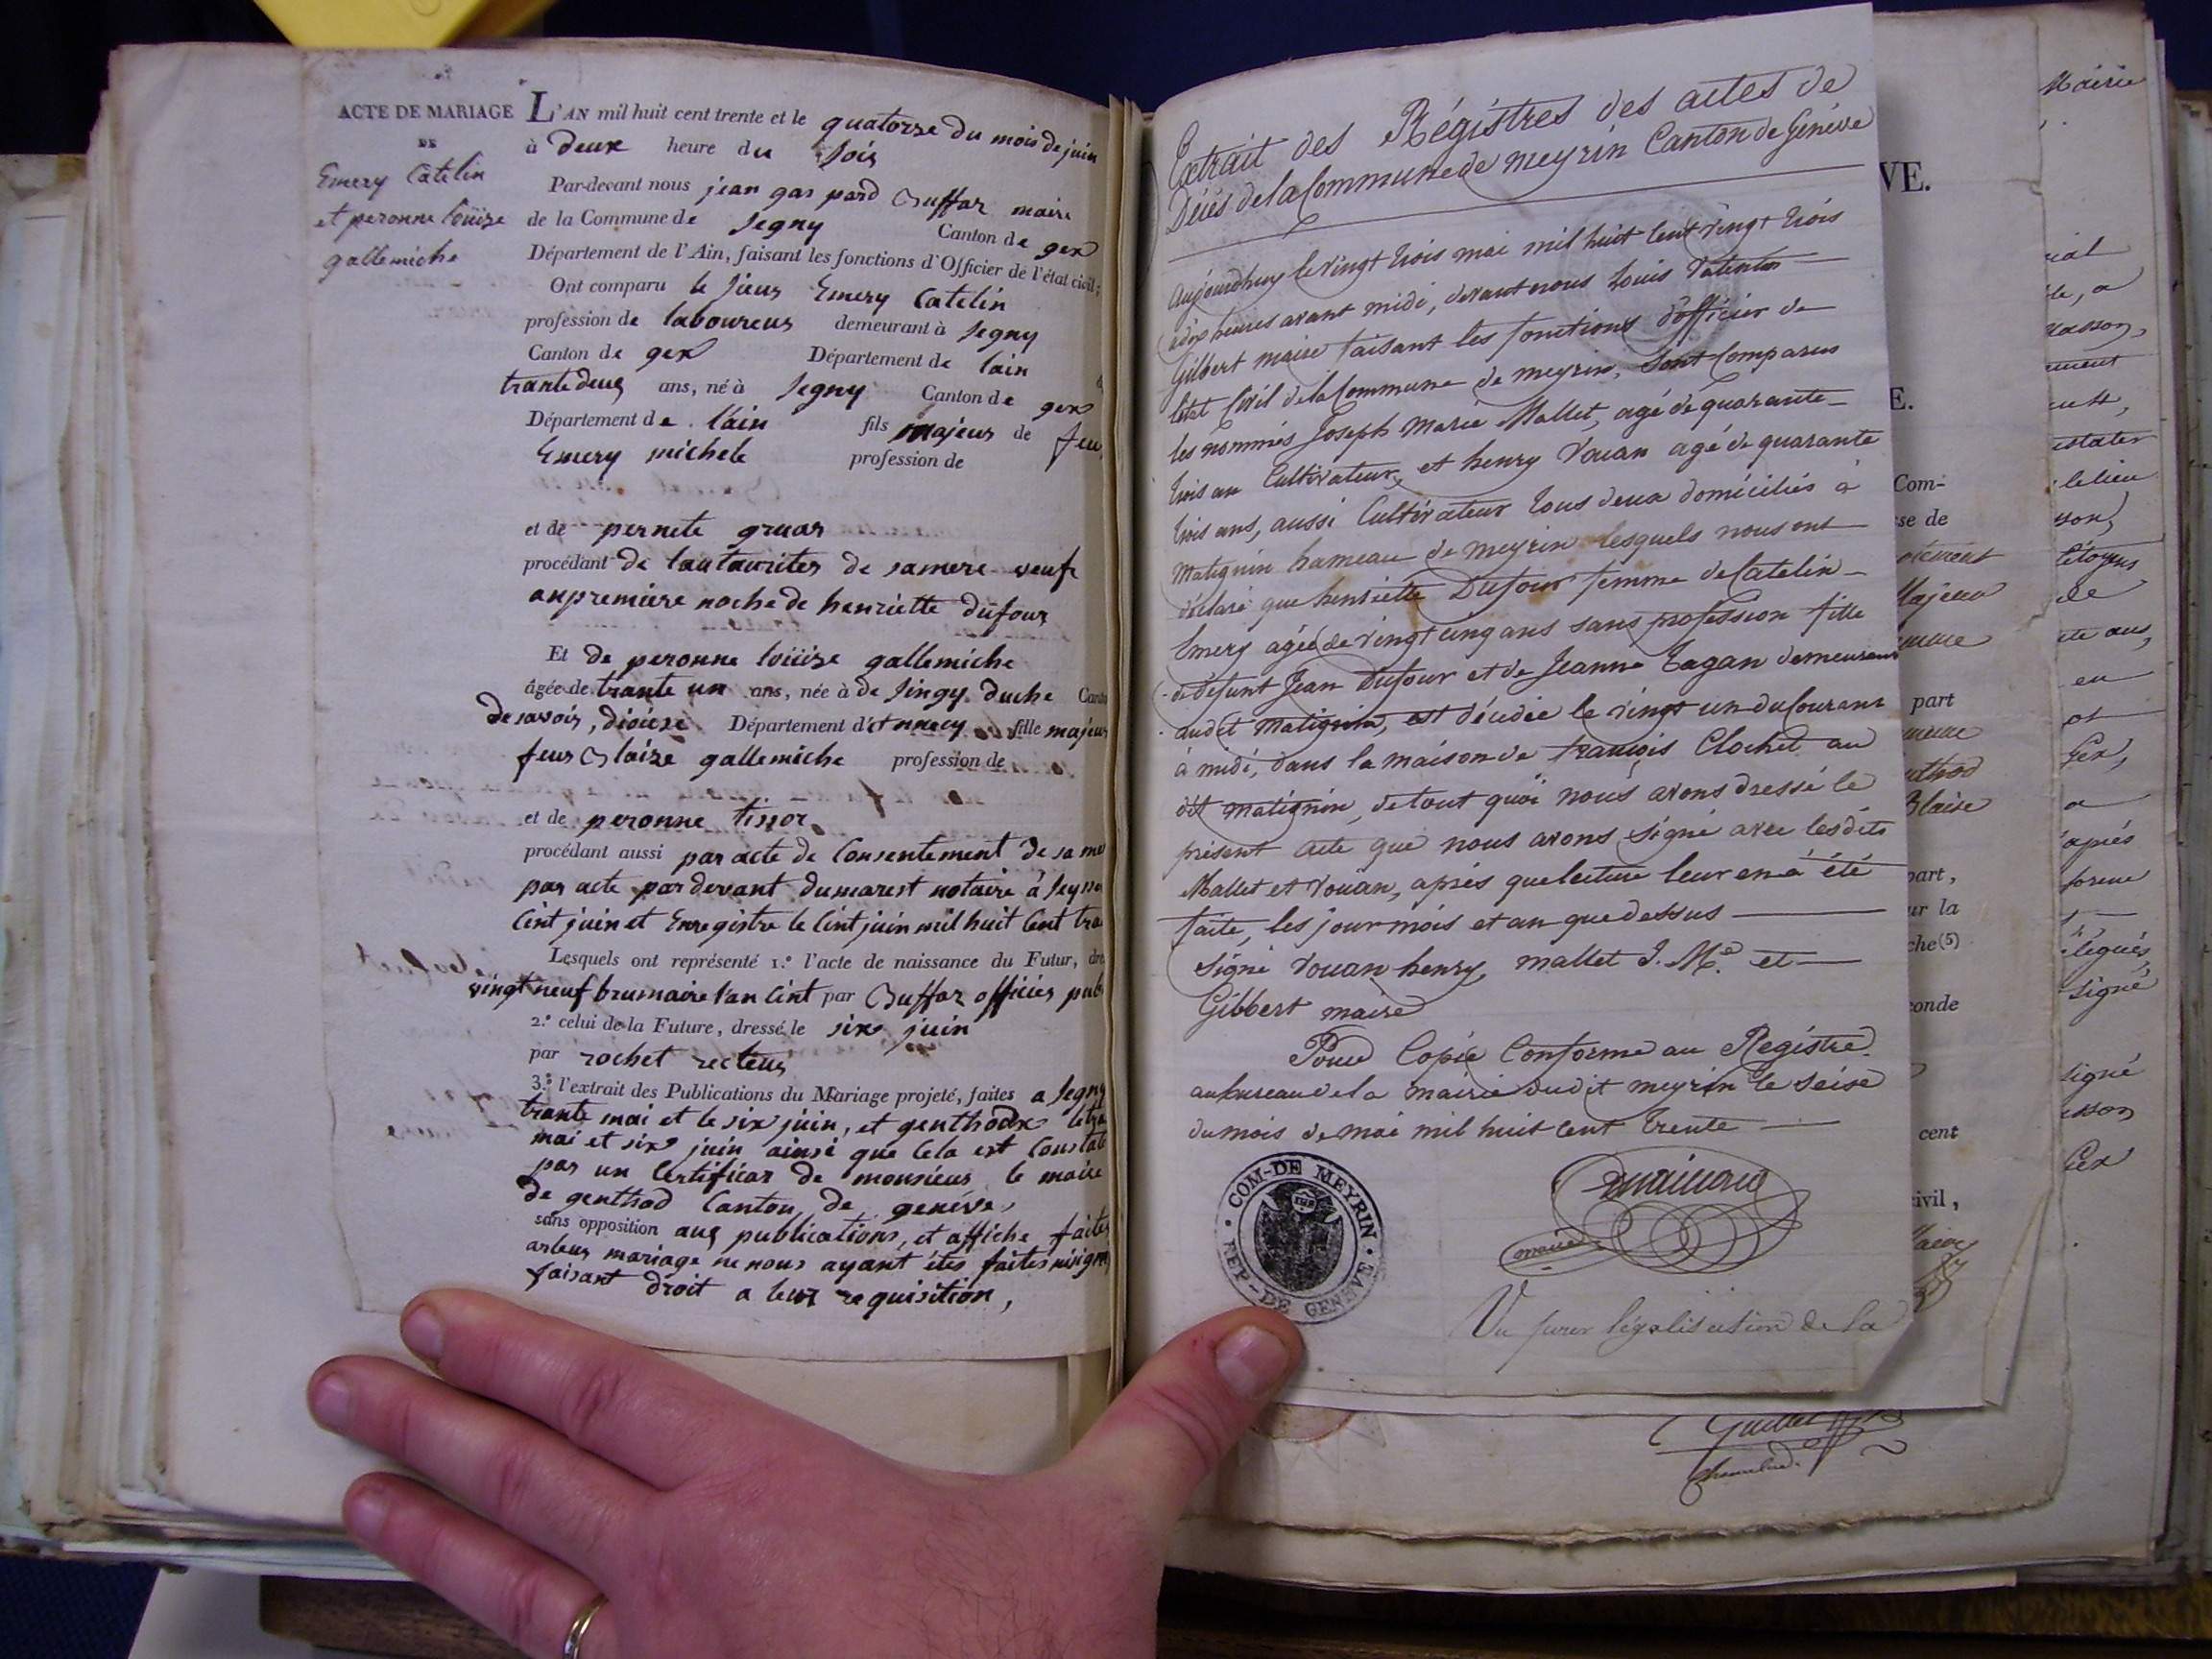 ACTE DE MARIAGE
DE
Emery Catelin
et peronne loüize
gallemiche
L'AN mil huit cent trente et le quatorze du mois de juin
à deux heure du soir
Par-devant nous jean gas pard Buffaz maire
de la Commune de Segny Canton de gex
Département de l'Ain, faisant les fonctions d'Officier de l'état civil;
Ont comparu le sieur Emery Catelin
profession de laboureur demeurant à Segny
Canton de gex Département de lain
trante deux ans, né à Segny Canton de gex
Département de lain fils majeur de feu
Emery michele profession de
et de pernete gruaz
procédant de lautaurites de samere veuf
anpremiere noche de henriette dufour
Et de peronne loüize gallemiche
âgée de trante un ans, née à de Singy duche
de savoir, dioicese Département d'et nnecy fille majeur
feu Blaize gallemiche profession de
et de peronne tissot
procédant aussi par acte de Consentement de sa
par acte par devant dumarest notaire á
Cint juin et Enregistre le Cint juin mil huit Cent
Lesquels ont représenté 1.º l'acte de naissance du Futur,
vingt neuf brumaire l'an Cint par Buffaz officier
2.º celui de la Future, dressé le six juin
par rochet recteur
3.º l'extrait des Publications du Mariage projeté, faites a Segny
trante mai et le six juin, et genthodx
mai et six juin ainsi que Cela est
par un Certificat de monsieur le maire
de genthod Canton de genéve,
sans opposition aux publications, et affiche faites
arleur mariage ne nous ayant étés faites
faisant droit a leur requisition,
Extrait des Régistres des actes de
Décés de la Commune de meyrin Canton de Genève
Aujourdhuy le vingt trois mai mil huit Cent vingt trois
adix heures avant midi, devant nous Louis Valentin
Gilbert maire faisant les fonctions d'officier de
létat Civil de la Commune de meyrin, Sont Comparus
les nommés Joseph Marie Mallet, agé de quarante
trois an Cultivateur, et henry Vouan agé de quarante
trois ans, aussi Cultivateur tous deux domiciliés à
Matignin hameau de meyrin lesquels nous ont
déclaré que henriette Dufour femme de Catelin
Emery agée de vingt cinq ans sans profession fille
de défunt Jean Dufour et de Jeanne Tagan demeurant
audit Matignin, est décédée le vingt un du Courant
à midi, dans la maison de françois Clochet au
dit Matignin, de tout quoi nous avons dressé le
présent acte que nous avons signé avec lesdits
Mallet et Vouan, aprés que lecture leur en a été
faite, les jour mois et an que dessus
Signé Vouan henry, mallet J. M.e et
Gibbert maire
Pour Copie Conforme au Régistre
au bureau de la mairie dudit meyrin le Seise
du mois de mai mil huit Cent Trente
maire
COM-DE MEYRIN
REP-DE GENÈVE
Vu pour légalisation de la
VE.
E.
Com-
se de
Majeur
part
Blaise
part,
ur la
che (5)
conde
cent
civil,
Mairie
le lieu
Citoyens
de
en
Gex,
a
aprés
signé
signé
Gex